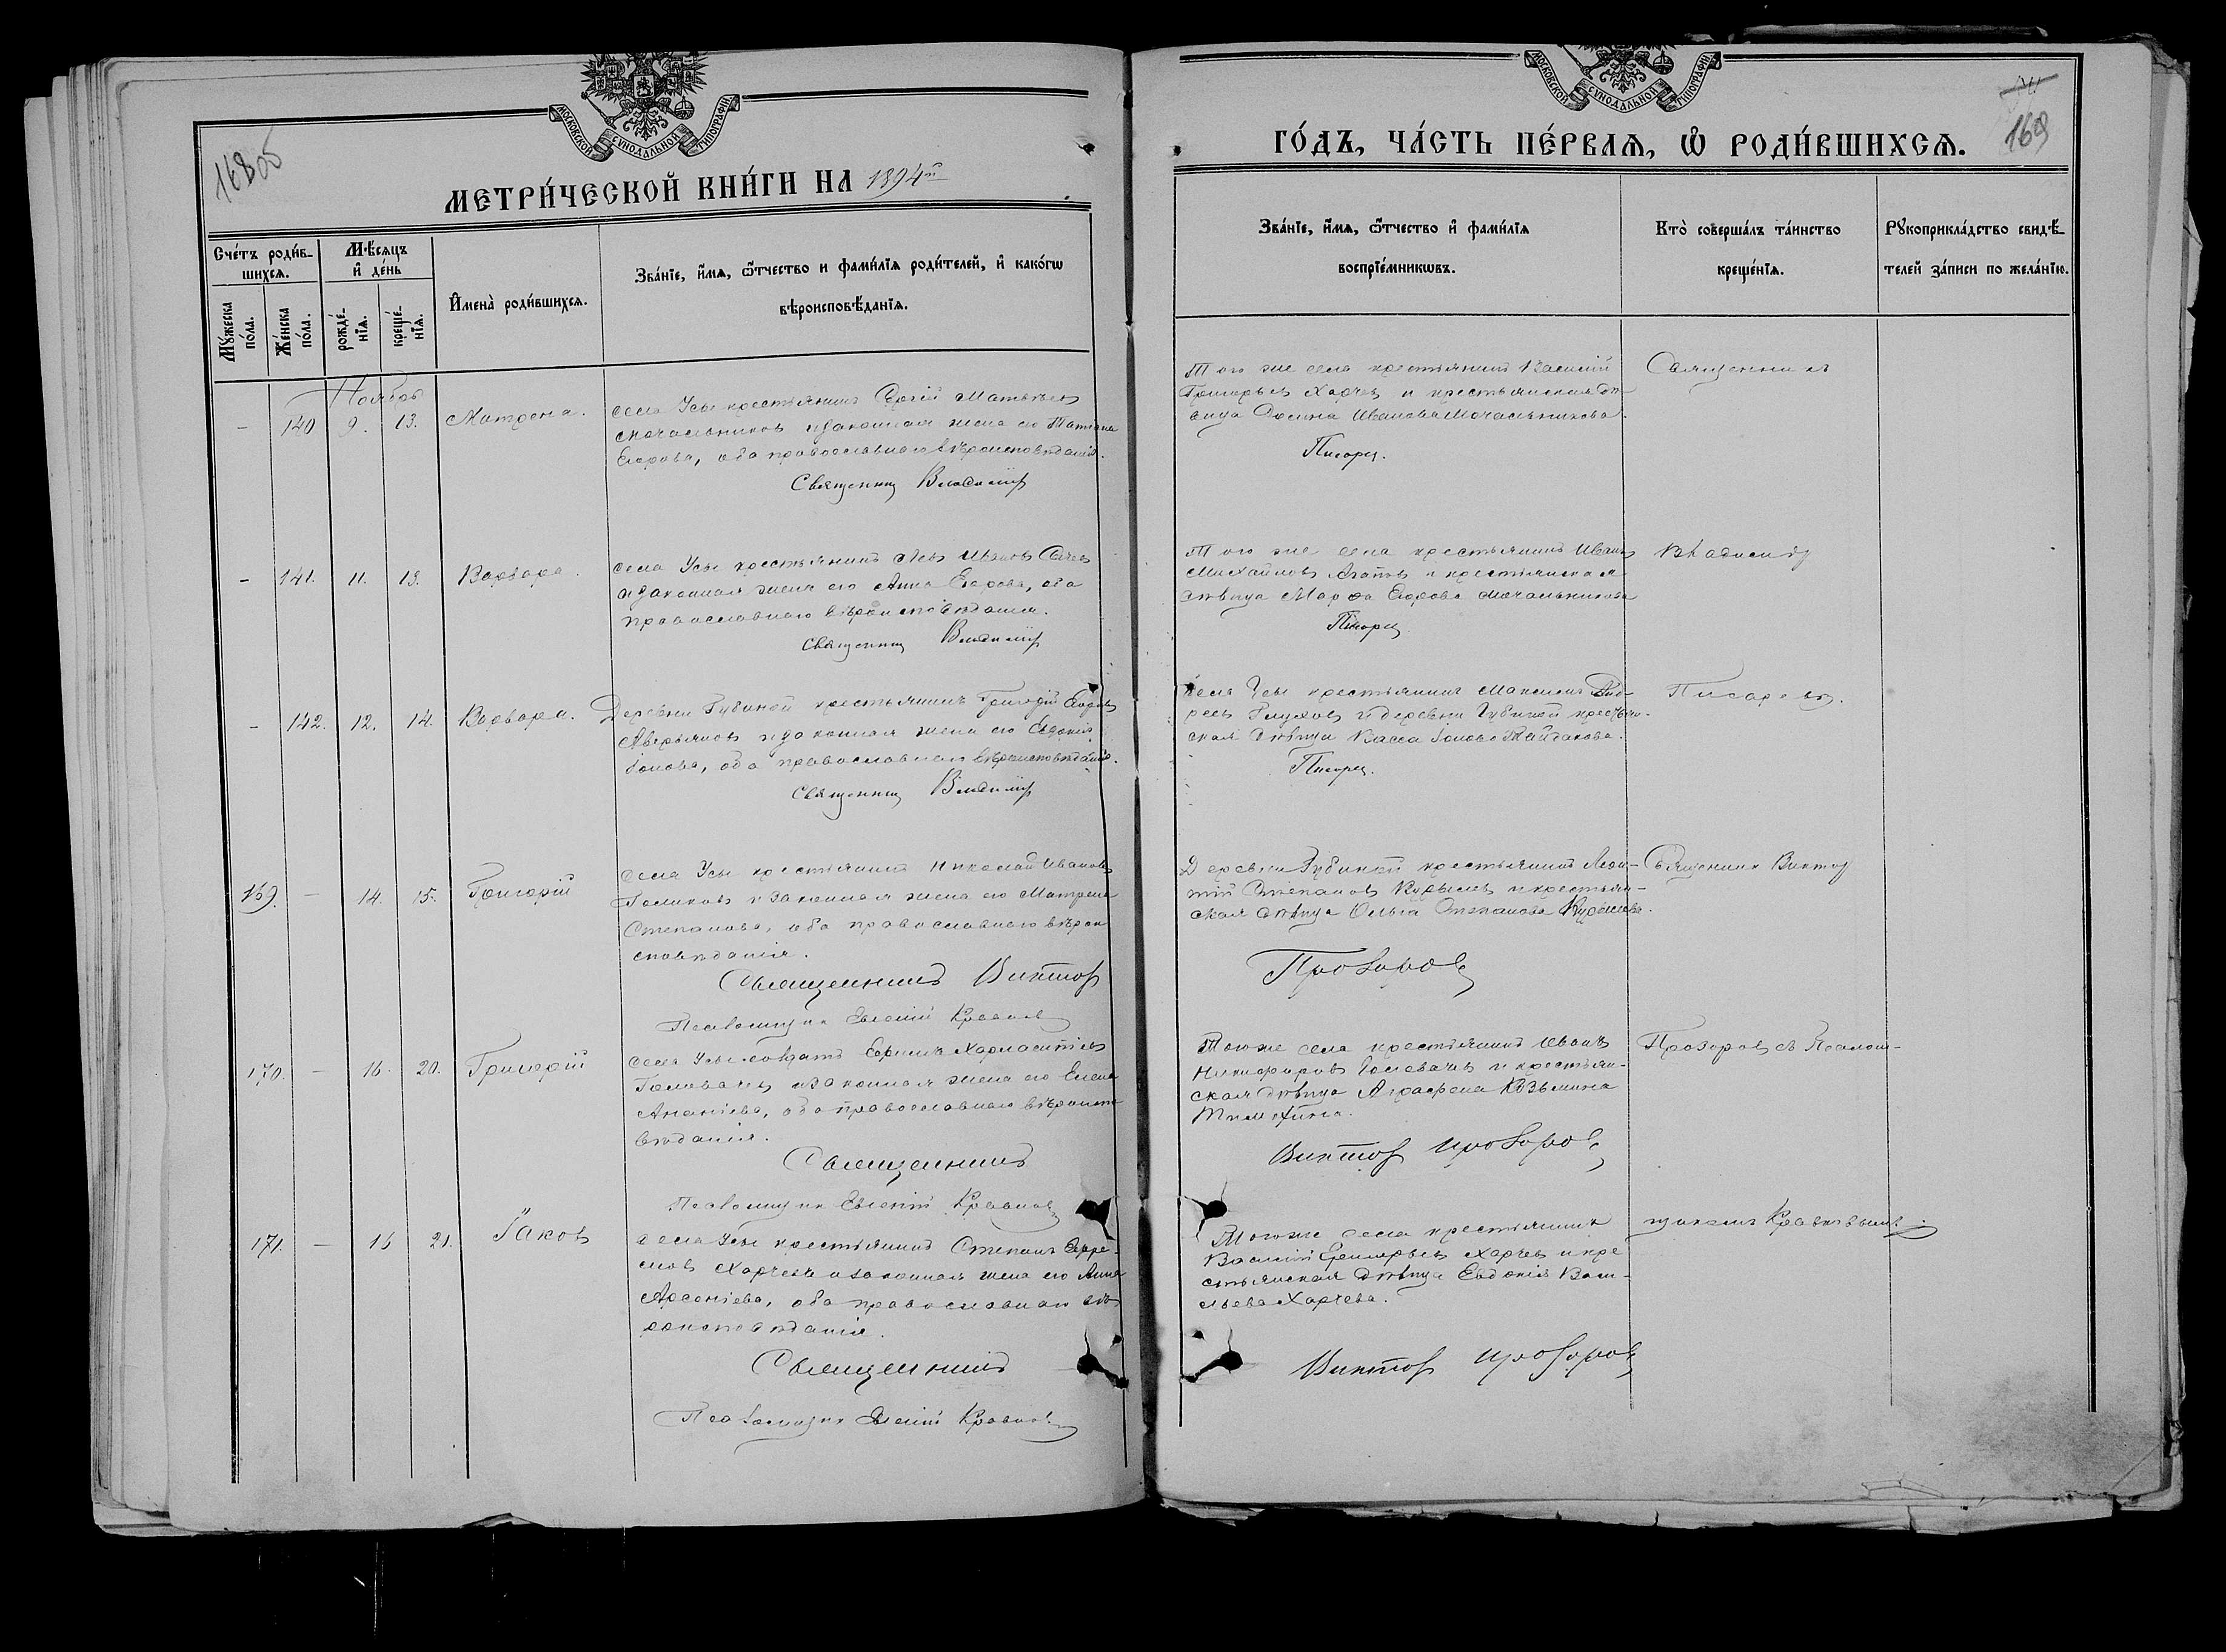 МОСКОВСКОЙ СѴНОДАЛЬНОЙ ТИПОГРАФІИ
168об
МЕТРИ́ЧЕСКОЙ КНИ́ГИ НА 1894й
Сче́тъ роди́в-
шихся.
Мѣ́сяцъ
и҆ де́нь
Мꙋ́жеска по́ла.
Же́нска по́ла.
рожде́-
нїя.
креще́-
нїя.
И҆мена̀ роди́вшихся.
Зва́нїе, и҆́мя, ѻ҆́тчество и фами́лїя роди́телей, и҆ како́гѡ
вѣроисповѣ́данїя.
Ноябрь
— 140 9. 13. Матрена.
села Усы крестьянинъ Сергій Матвѣевъ
Мочальниковъ и законная жена его Татіана
Егорова, оба православнаго вѣроисповѣданія.
Священникъ Владиміръ
— 141. 11. 13. Варвара.
села Усы крестьянинъ Левъ Ивановъ
и законная жена его Анна Егорова, оба
православнаго вѣроисповѣданія.
Священникъ Владиміръ
— 142. 12. 14. Варвара.
Деревни Губиной крестьянинъ Григорій Егоровъ
Аверьяновъ и законная жена его Евдокія
оба православнаго вѣроисповѣданія.
Священникъ Владиміръ
169. — 14. 15. Григорій
села Усы крестьянинъ Николай Ивановъ
Голиковъ и законная жена его Матрена
Степанова, оба православнаго вѣрои
сповѣданія.
Священникъ Викторъ
Псаломщикъ Евгеній
170. — 16. 20. Григорій
села Усы солдатъ
и законная жена его Елена
Ананіева, оба православнаго вѣроиспо
вѣданія.
Священникъ
Псаломщикъ Евгеній
171. — 16 21. Іаковъ
села Усы крестьянинъ Степанъ Ефре-
мовъ Харчевъ и законная жена его Анна
Арсеніева, оба православнаго вѣ
роисповѣданія.
Священникъ
Псаломщикъ Евгеній
МОСКОВСКОЙ СѴНОДАЛЬНОЙ ТИПОГРАФІИ
169
ГО́ДЪ, ЧА́СТЬ ПЕ́РВАЯ, Ѡ҆ РОДИ́ВШИХСЯ.
Зва́нїе, и҆́мя, ѻ҆́тчество и҆ фами́лїя
воспрїе́мникѡвъ.
Кто̀ соверша́лъ та́инство
креще́нїя.
Рꙋкоприкла́дство свидѣ́-
телей за́писи по жела́нїю.
Того же села крестьянинъ Василій
Григорьевъ Харчевъ и крестьянская дѣ-
вица Иванова Мочальникова.
Писаревъ.
Священникъ
Того же села крестьянинъ Иванъ
Михайловъ Агаповъ и крестьянская
дѣвица Марѳа Егорова Мочальникова
Писаревъ
Владиміръ
села Усы крестьянинъ Максимъ
и деревни Губиной крестьян-
ская дѣвица
Писаревъ.
Писаревъ.
Деревни Губиной крестьянинъ Леон-
тій Степановъ и крестьян-
ская дѣвица Ольга Степанова
Прозоровъ
Священникъ Викторъ
Того же села крестьянинъ Иванъ
Никифоровъ Головачевъ и крестьян-
ская дѣвица Аграфена Козьмина
Викторъ Прозоровъ
Прозоровъ съ Псалом-
Того же села крестьянинъ
Василій Григорьевъ Харчевъ и кре
стьянская дѣвица Евдокія Васи-
льева Харчева.
Викторъ Прозоровъ
щикомъ